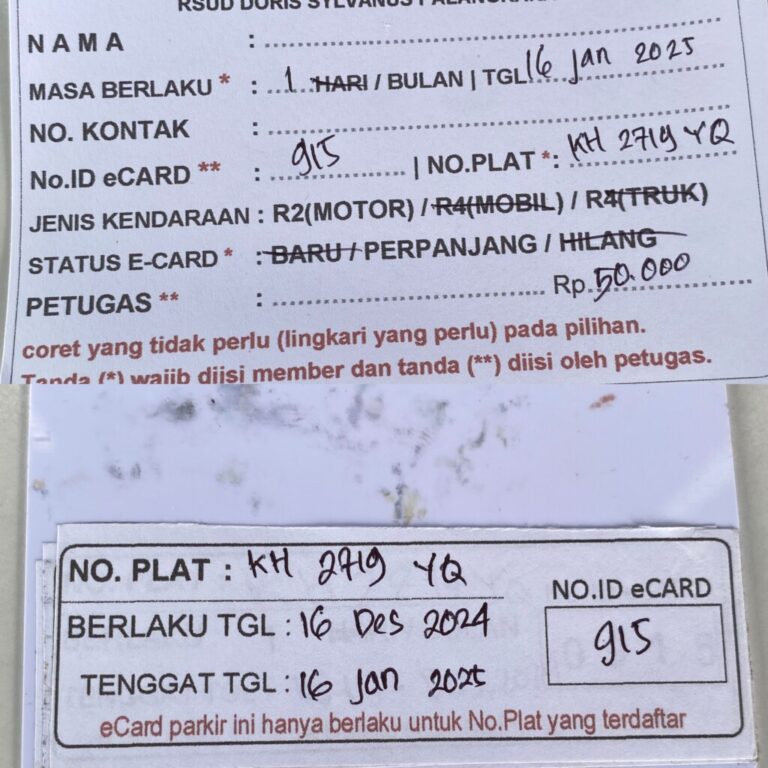 RSUD DORIS SYLVANUS PALANGKARA
NAMA :
MASA BERLAKU * : 1 HARI / BULAN | TGL 16 Jan 2025
NO. KONTAK :
No.ID eCARD ** : 915 | NO.PLAT *: KH 2719 YQ
JENIS KENDARAAN : R2(MOTOR) / R4(MOBIL) / R4(TRUK)
STATUS E-CARD * : BARU / PERPANJANG / HILANG
PETUGAS ** : Rp. 50.000
coret yang tidak perlu (lingkari yang perlu) pada pilihan.
Tanda (*) wajib diisi member dan tanda (**) diisi oleh petugas.
NO. PLAT : KH 2719 YQ
NO.ID eCARD
BERLAKU TGL : 16 Des 2024
915
TENGGAT TGL : 16 Jan 2025
eCard parkir ini hanya berlaku untuk No.Plat yang terdaftar